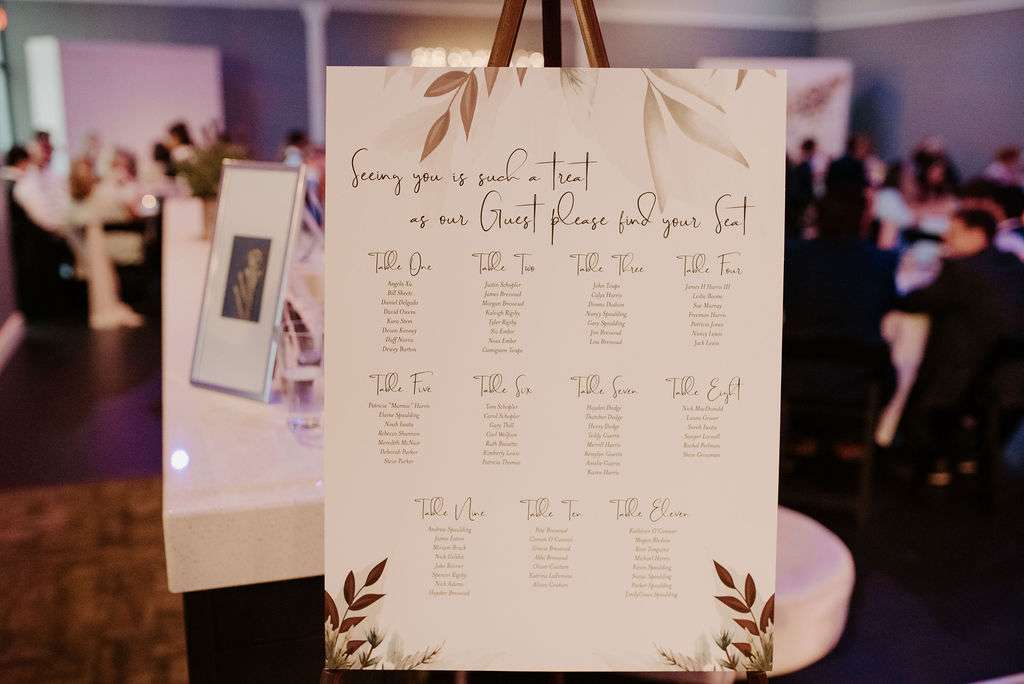 Seeing you is such a treat
as our Guest please find your Seat
Table One
Angela Xu
Bill Skeen
Daniel Delgado
David Owens
Kara Stem
Devon Kenney
Duff Norris
Dewey Burton
Table Two
Justin Schopler
James Brewood
Morgan Brewood
Kaleigh Rigsby
Tyler Rigsby
Nia Ember
Noua Ember
Cunnigum Toups
Table Three
John Toups
Calyx Harris
Donna Dodson
Nancy Spaulding
Gary Spaulding
Jim Brewood
Lou Brewood
Table Four
James H Harris III
Leslie Boone
Sue Murray
Freeman Harris
Patricia Jones
Nancy Lewis
Jack Lewis
Table Five
Patricia "Marmie" Harris
Elaine Spaulding
Noah Iwata
Rebecca Shannon
Meredith McNair
Deborah Parker
Steve Parker
Table Six
Tom Schopler
Carol Schopler
Gary Thill
Carl Wolfson
Ruth
Kimberly Lewis
Patricia Thomas
Table Seven
Hayden Dodge
Thatcher Dodge
Henry Dodge
Teddy Guerra
Merrell Harris
Guerra
Amelia Guerra
Karen Harris
Table Eight
Nick MacDonald
Laura Grover
Sarah Iwata
Sawyer Lowell
Rachel Perlman
Steve Grossman
Table Nine
Andrew Spaulding
James Eaton
Morgan Brock
Nick
John
Spencer Rigsby
Nick Adams
Hayden Brewood
Table Ten
Pete Brewood
Carson O'Connor
Gracie Brewood
Abbi Brewood
Oliver Couture
Katrina
Alison Graham
Table Eleven
Kathleen O'Connor
Megan
Tongson
Michael Harris
Spaulding
Spaulding
Parker Spaulding
EmilyGrace Spaulding